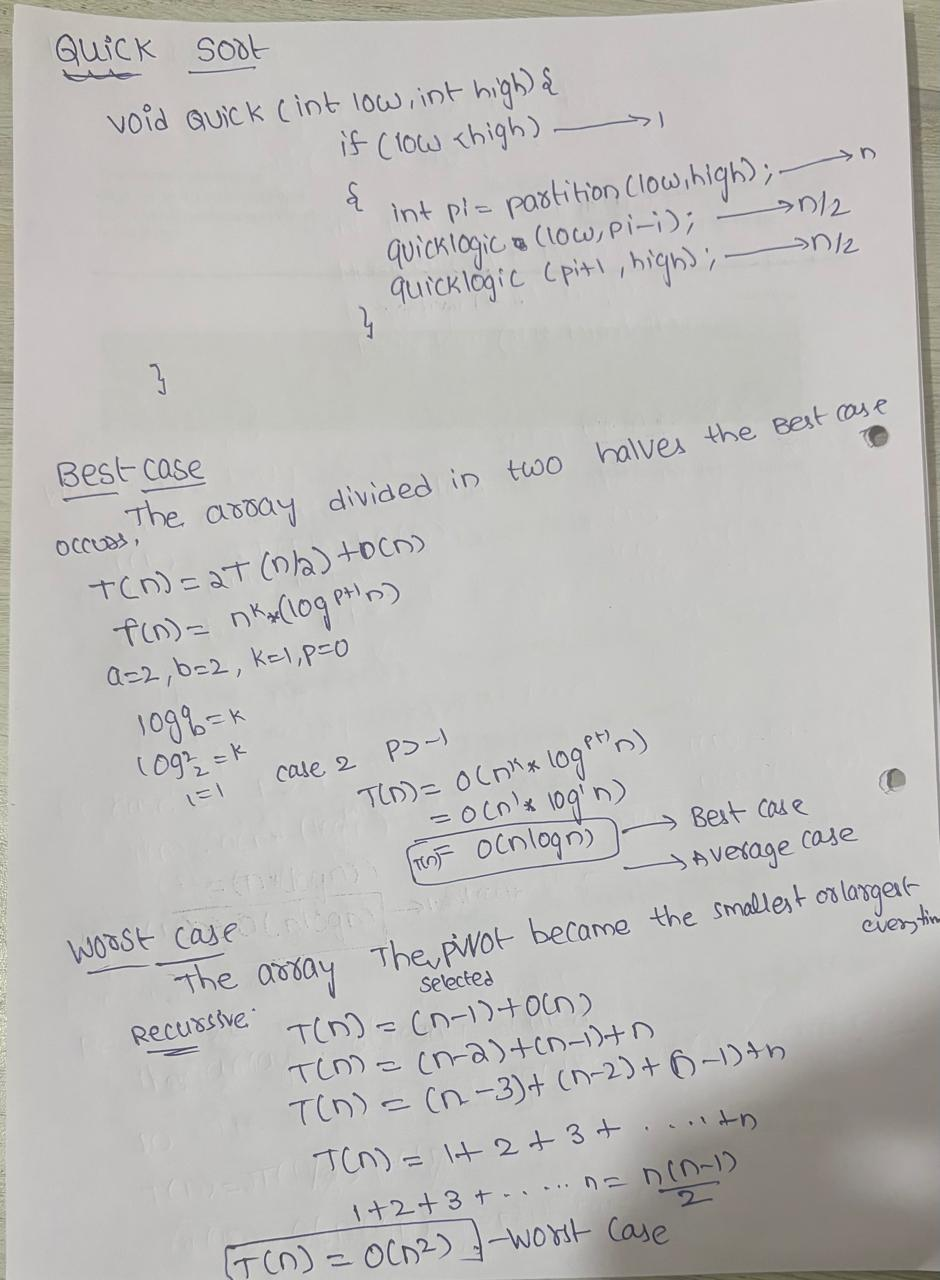 QUICK SORT
void QUICK (int low, int high) {
if (low < high) → 1
{
int pi = partition (low, high); → n
quicklogic (low, pi-i); → n/2
quicklogic (pi+1, high); → n/2
}
}
Best case
The array divided in two halves the Best case
occurs,
T(n) = 2T (n/2) + O(n)
f(n) = n^k * (log^p+1 n)
a=2, b=2, k=1, p=0
log^a_b = k
log^2_2 = k
1=1 case 2 p>-1
T(n) = O(n^k * log^p+1 n)
= O(n^1 * log^1 n)
T(n) = O(n log n) → Best case
→ Average case
Worst case
The array The selected pivot became the smallest or largest
everytim
Recurssive:
T(n) = (n-1) + O(n)
T(n) = (n-2) + (n-1) + n
T(n) = (n-3) + (n-2) + (n-1) + n
T(n) = 1 + 2 + 3 + ..... + n
1+2+3+ ...... n = n(n-1)/2
T(n) = O(n^2) - Worst Case